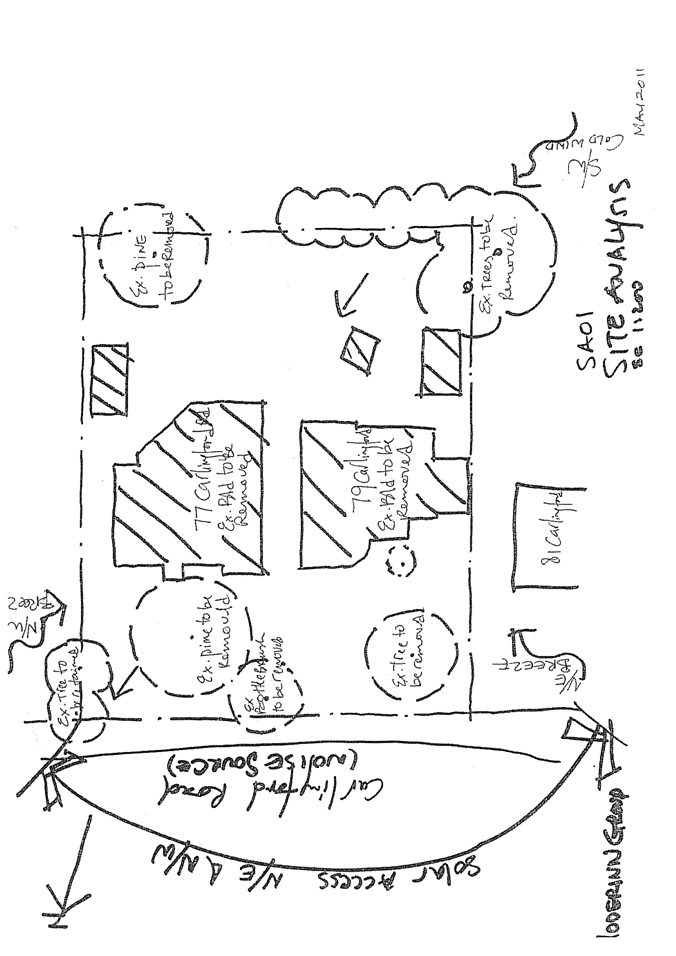 SA01
SITE ANALYSIS
SC 1:200
MAY 2011
S/E
COLD WIND
Ex. PINE
to be removed
Ex. Trees to be
Removed.
77 Carlingford Rd
Ex. Bld to be
Removed
79 Carlingford
Ex. Bld to be
Removed
81 Carlingford
N/E
BREEZ
Ex. Tree to
be retained
Ex. pine to be
Removed
Ex
to be removed
Ex. Tree to
be removed
N/E
BREEZE
Carlingford Road
(NOISE SOURCE)
Solar ACCESS N/E & N/W
N
IODERINN GROUP